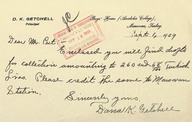 D. K. GETCHELL
Principal
Boys' Home (Anatolia College)
Marsovan, Turkey
Sept. 6, 1909
Dear Mr. Peet:
Enclosed you will find drafts
for collections amounting to 260 and Turkish
liras. Please credit the same to Marsovan
Station.
Sincerely yours,
Dana K. Getchell